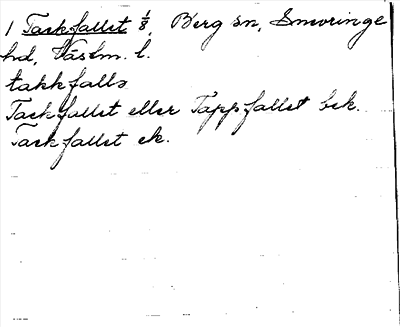 1 Tackfallet 1/8, Berg sn, Snevringe
hd, Västm. l.
takkfallə
Tackfallet eller Tappfallet bek.
Tackfallet ek.